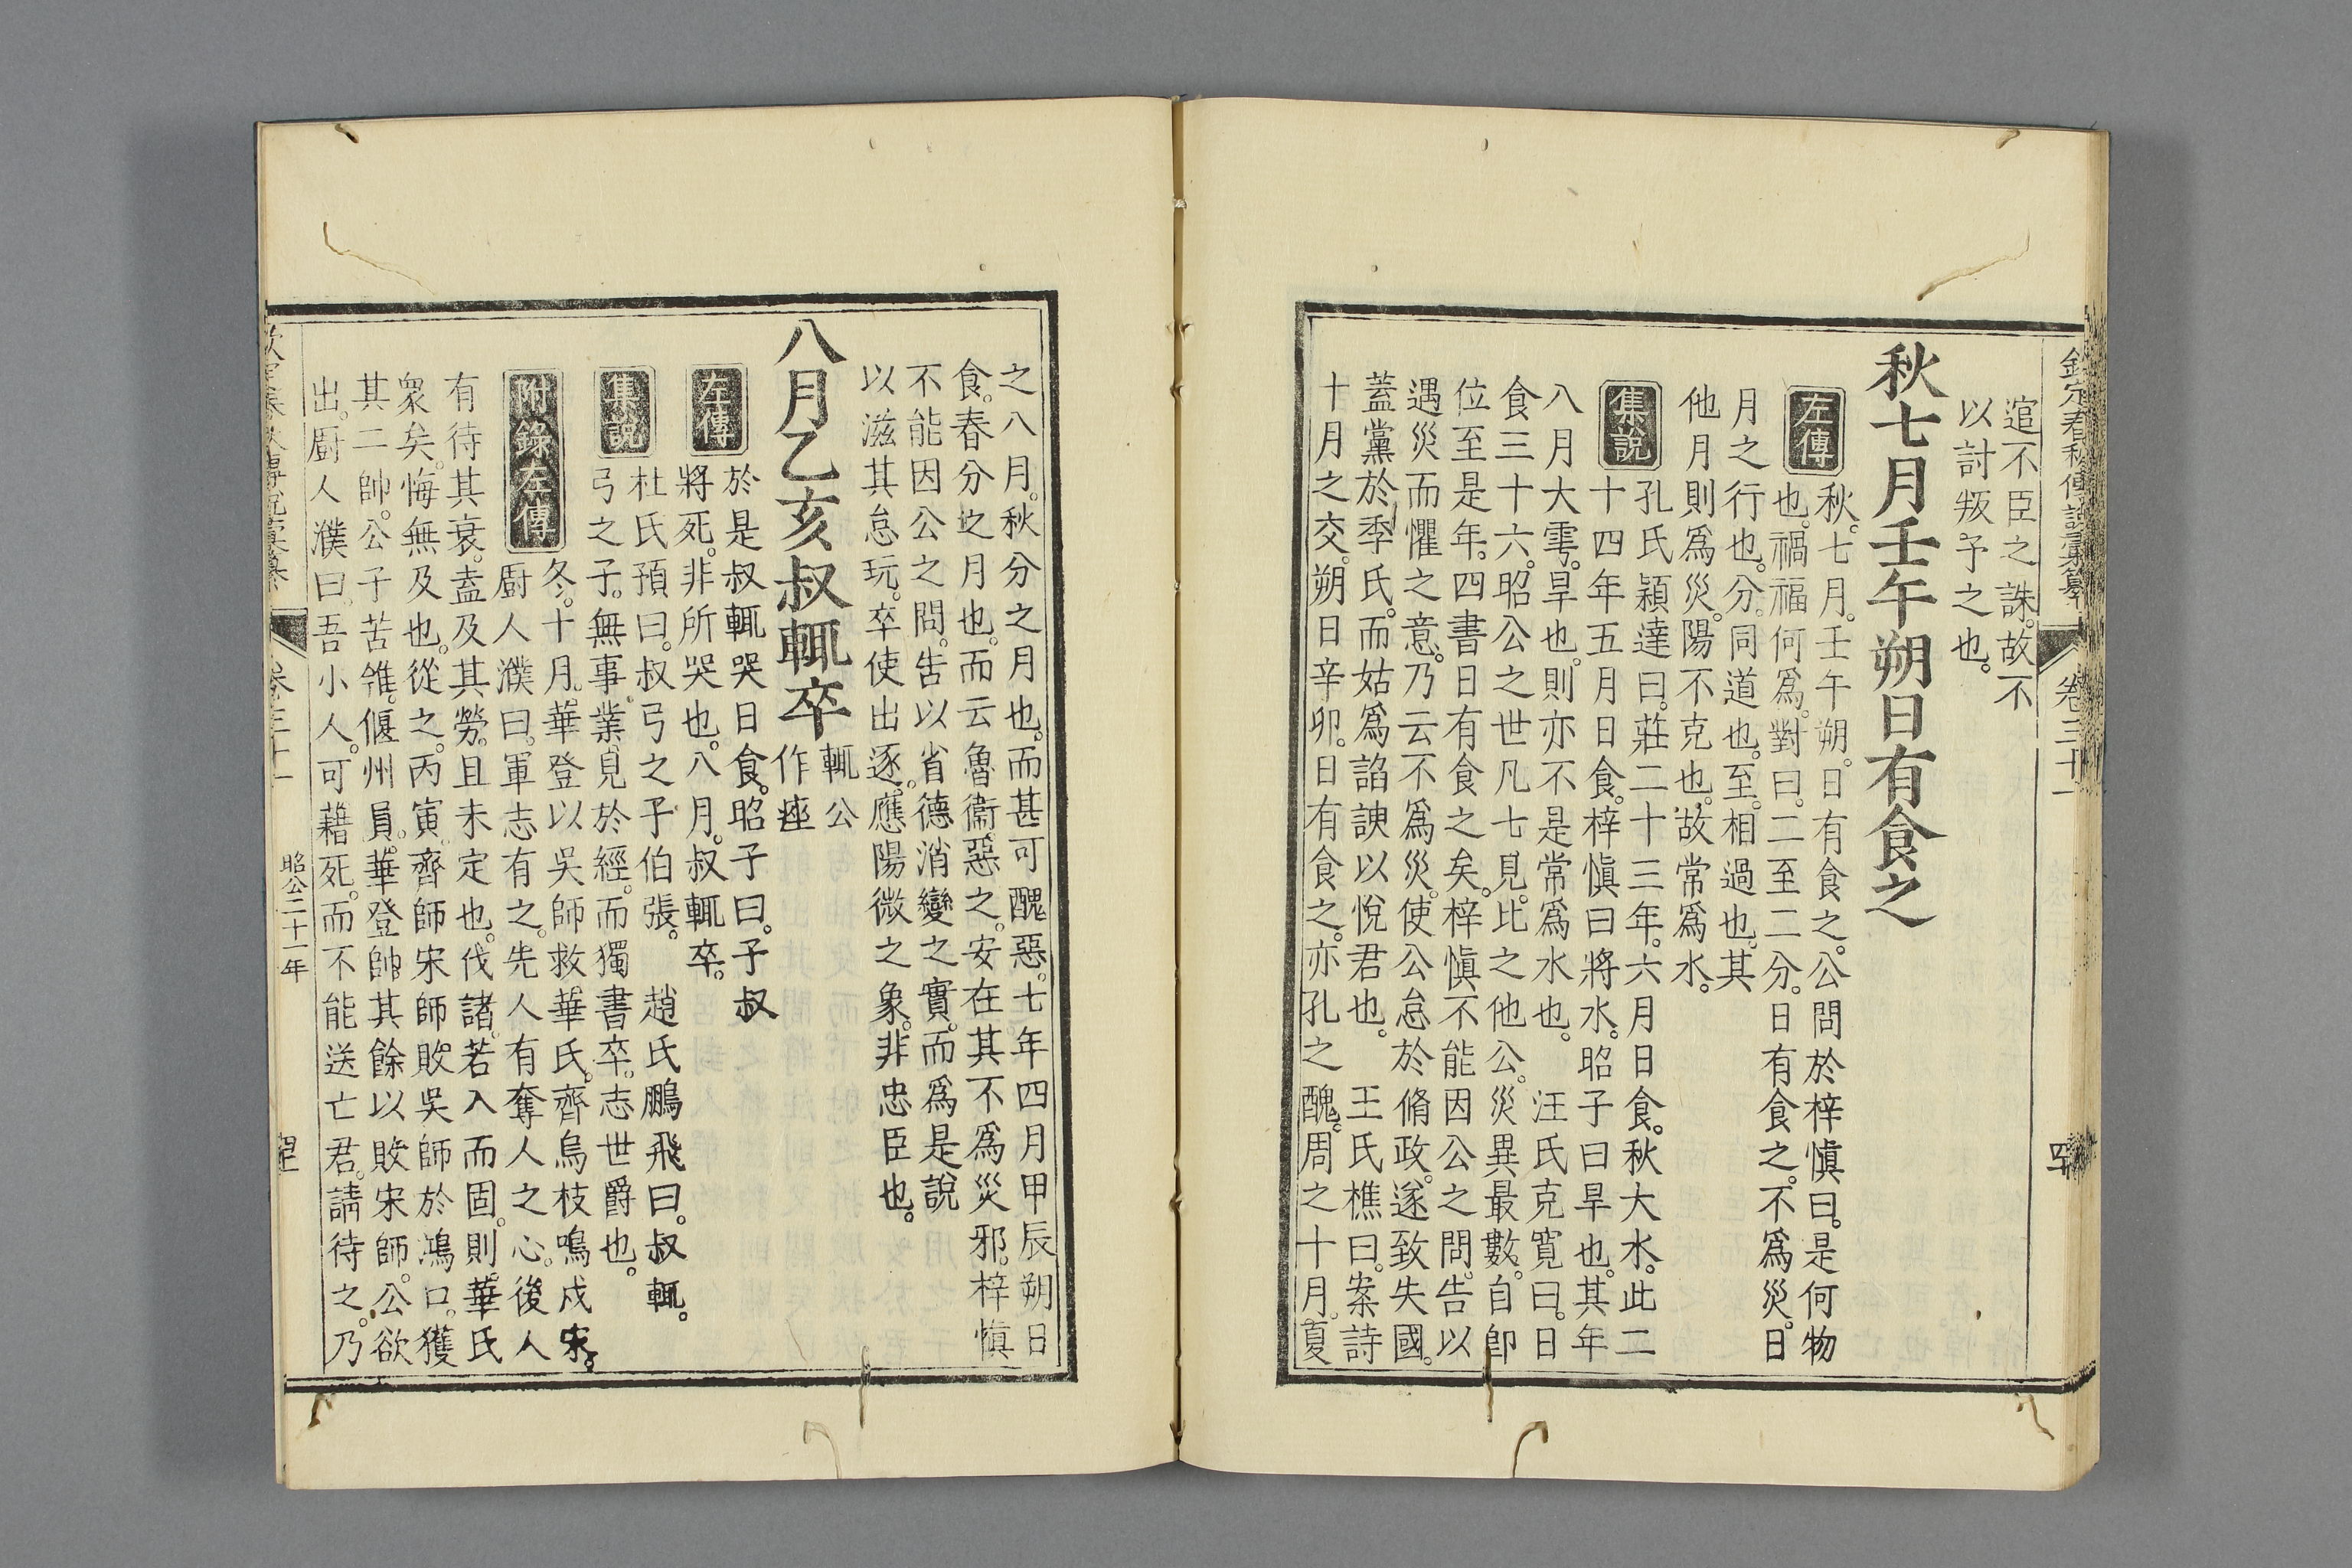 欽定春秋傳說彙纂 卷三十一
逭不臣之誅。故不
以討叛予之也。
秋七月壬午朔日有食之
左傳 秋。七月。壬午朔。日有食之。公問於梓慎曰。是何物
也。禍福何爲。對曰。二至二分。日有食之。不爲災。日
月之行也。分。同道也。至。相過也。其
他月則爲災。陽不克也。故常爲水。
集說 孔氏穎達曰。莊二十三年。六月日食。秋大水。此二
十四年五月日食。梓慎曰將水。昭子曰旱也。其年
八月大雩。旱也。則亦不是常爲水也。 汪氏克寬曰。日
食三十六。昭公之世凡七見。比之他公。災異最數。自卽
位至是年。四書日有食之矣。梓慎不能因公之問。告以
遇災而懼之意。乃云不爲災。使公怠於脩政。遂致失國。
蓋黨於季氏。而姑爲諂諛以悅君也。 王氏樵曰。案詩
十月之交。朔日辛卯。日有食之。亦孔之醜。周之十月。夏
之八月。秋分之月也。而甚可醜惡。七年四月甲辰朔日
食。春分之月也。而云魯衞惡之。安在其不爲災邪。梓慎
不能因公之問。告以省德消變之實。而爲是說
以滋其怠玩。卒使出逐。應陽微之象。非忠臣也。
八月乙亥叔輒卒 輒公
作痤
左傳 於是叔輒哭日食。昭子曰。子叔
將死。非所哭也。八月。叔輒卒。
集說 杜氏預曰。叔弓之子伯張。 趙氏鵬飛曰。叔輒。
弓之子。無事業見於經。而獨書卒。志世爵也。
附錄左傳 冬。十月。華登以吳師救華氏。齊烏枝鳴戍宋。
廚人濮曰。軍志有之。先人有奪人之心。後人
有待其衰。盍及其勞。且未定也。伐諸。若入而固。則華氏
衆矣。悔無及也。從之。丙寅。齊師宋師敗吳師於鴻口。獲
其二帥。公子苦雂。偃州員。華登帥其餘以敗宋師。公欲
出。廚人濮曰。吾小人。可藉死。而不能送亡君。請待之。乃
卷三十一 昭公二十一年